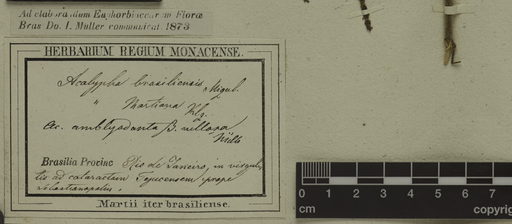 Ad elaborandum Euphorbiacearum Florae
Bras Do. I. Müller communicat. 1873
HERBARIUM REGIUM MONACENSE.
Acalypha brasiliensis
" Martiana Kls.
Ac. amblyodonta β. villosa
Müll
Brasilia Provinc Rio de Janeiro, in virgul-
tis ad cataractam Tejucensem prope
Sebastianopolis.
Martii iter brasiliense.
0 1 2 3 4 5 6 7
cm
copyrig